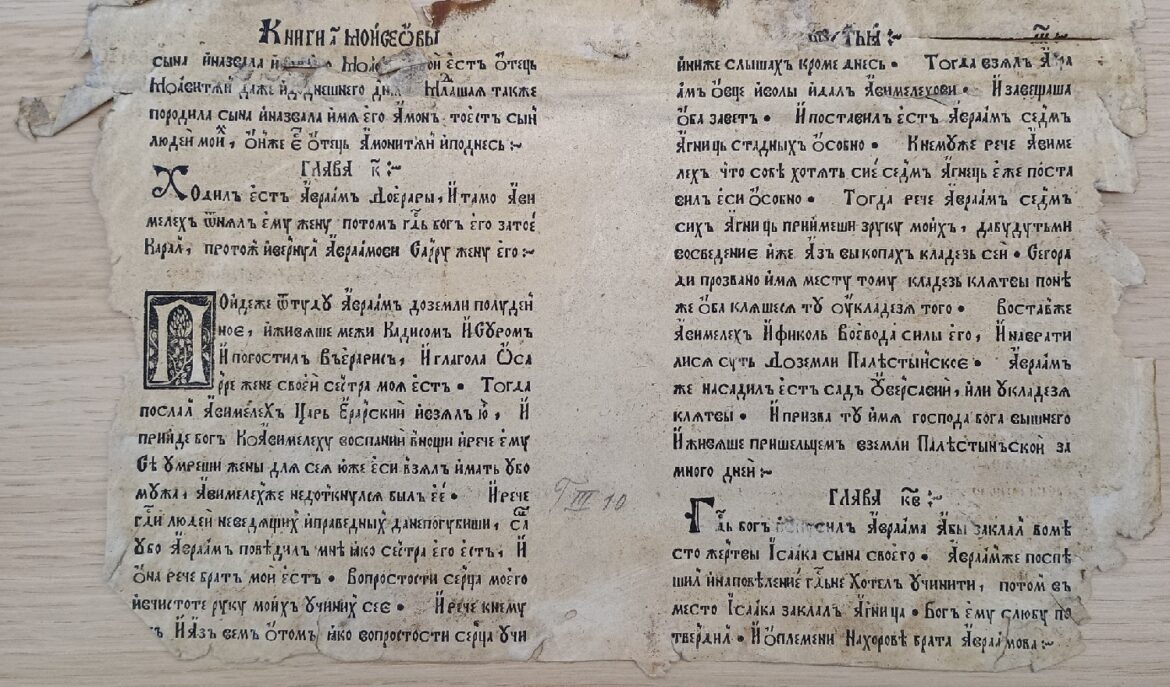 Книги а҃ Мойсеѡвы
сына и назвала и
ой єстъ ѿтець
Моавитяй даже и до днешнего дня Младшая также
породила сына и назвала имя его Амон҄ъ тоєстъ сын҄
людей мой҄, Он же є҄ Отець Амонитяй и подесь:~
ГЛАВА к҃:~
Ходилъ єстъ Авраам҄ъ доЄрары, И тамо Ави
мелехъ ѿнял ему жену потом гдь҃ бог его затоє
Карал, протож и вернул Авраамови Сарру жену его:~
Пойдеже ѿтуду Авраам҄ъ доземли полуден
ноє, и живяше межи Кадисом И Суром
И погостил ВъЄрарис, И глагола ОСа
рре жене своєй сестра моя єсть • Тогда
послал Авимелехъ Царь Єрарский и взялъ ю, И
прийде бог КоАвимелеху воспаний вноши и рече ему
Се умреши жены для сея юже єси взял и мать убо
мужа, Авимелехже недоткнулся был єє • И рече
гди҃ людей неведящих и праведных данепогубиши, са
убо Авраам҄ъ поведилъ мне яко сестра его єсть, И
Она рече брат мой єсть • Вопростости серца моего
и вчистоте руку моих учиних сеє • И рече кнему
И Аз вем Отом яко вопростости серца учи
т҃і
ииже слышахъ кроме днесь • Тогда взял Авра
ам Овце и волы и дал Авимелехови • И завещаша
Оба завет • И поставил єстъ Авраам҄ъ седмъ
Агниць стадных Особно • Кнемуже рече Авиме
лехъ что собе хотять сиє седмъ Агнець єже поста
вилъ єси Особно • Тогда рече Авраам҄ъ седмъ
сихъ Агниць прийимеши зруку моихъ, дабудутьми
восведениє иже Азъ выкопахъ кладезь сей • Сегора
ди прозвано имя месту тому кладезь клятвы поне
же Оба кляшеся ту Укладезя того • Воставже
Авимелехъ И Фиколь Воєвода силы его, И наврати
лися суть Доземли Палестынскоє • Авраамъ
же насадилъ єстъ сад УВерсавий, или укладезя
клятвы • И призва ту имя господа бога вышнего
И живяше пришельцем вземли Палестынъской за
много дней:~
ГЛАВА кв҃:~
Гдь҃ богъ силъ Авраама Абы заклал воме
сто жертвы Ісаака сына своего • Авраамже поспе
шил и наповеление гдьне Хотел учинити, потом въ
место Ісаака заклал Агница • Богъ ему слюбу по
твердил • И Оплемени Нахорове брата Авраамова:~